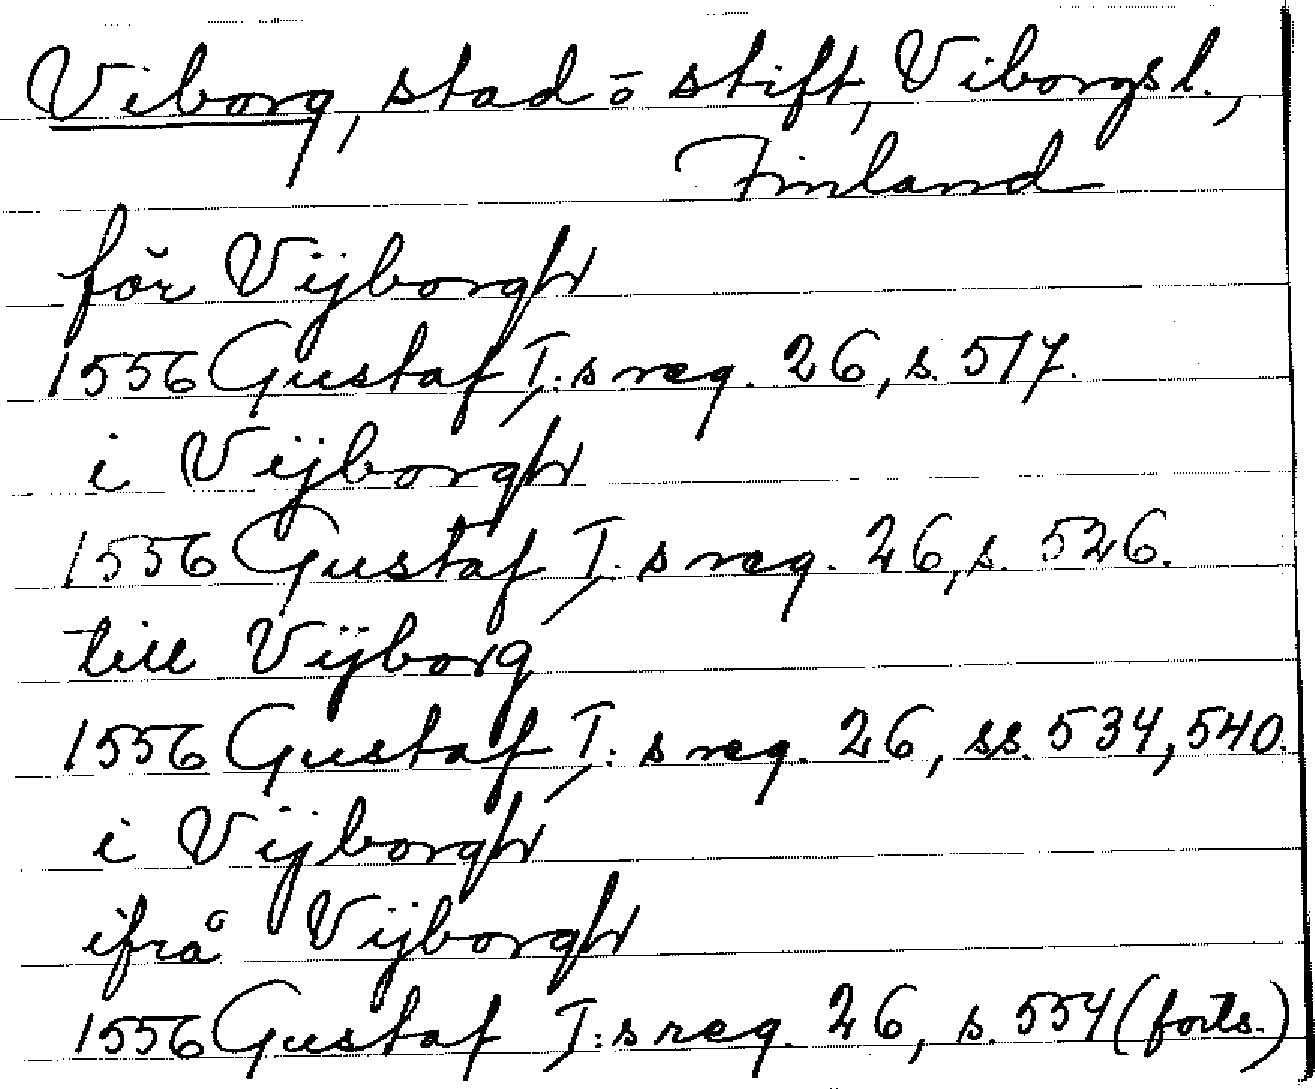 Viborg, stad o stift, Viborgs l.,
Finland
för Vijborgh
1556 Gustaf I:s reg. 26, s. 517.
i Vijborgh
1556 Gustaf I:s reg. 26, s. 526.
till Vijborg
1556 Gustaf I:s reg. 26, ss. 534, 540.
i Vijborgh
ifrå Vijborgh
1556 Gustaf I:s reg. 26, s. 554 (forts.)